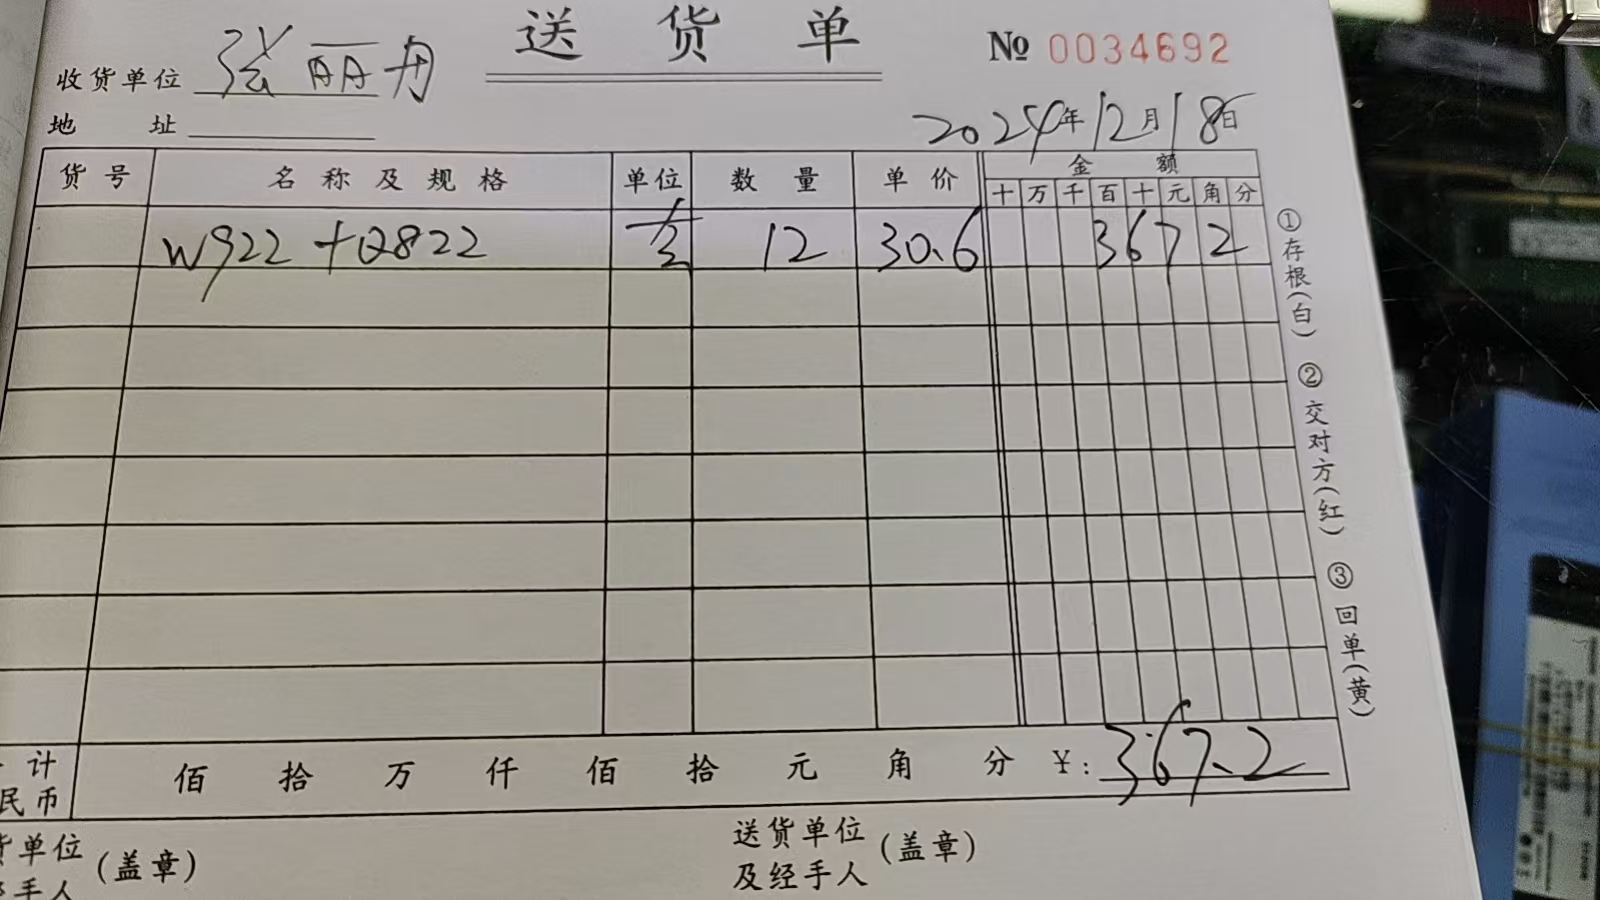 送货单
№ 0034692
收货单位 张丽丹
地 址
2024年12月18日
货号 名称及规格 单位 数量 单价 金额
十 万 千 百 十 元 角 分
W922+Q822 12 30.6 3 6 7 2
①存根(白) ②交对方(红) ③回单(黄)
计 佰 拾 万 仟 佰 拾 元 角 分 ¥:367.2
民币
货单位 (盖章) 送货单位 (盖章)
手人 及经手人